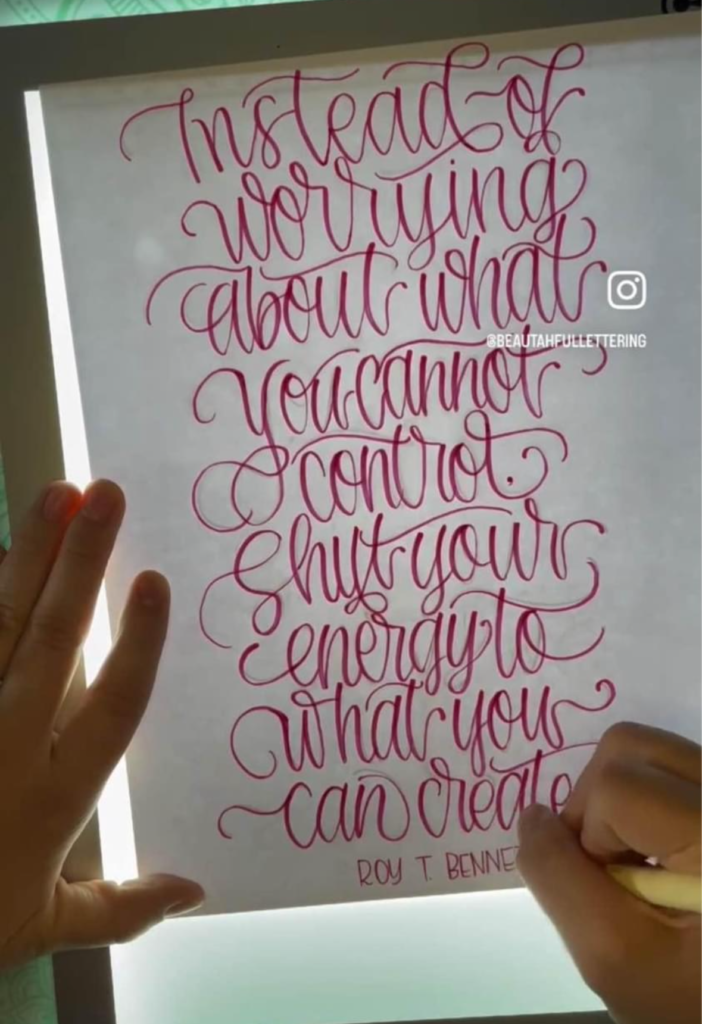 Instead of
worrying
about what
@BEAUTAHFULLETTERING
you cannot
control.
Shift your
energy to
what you
can create
ROY T. BENNE